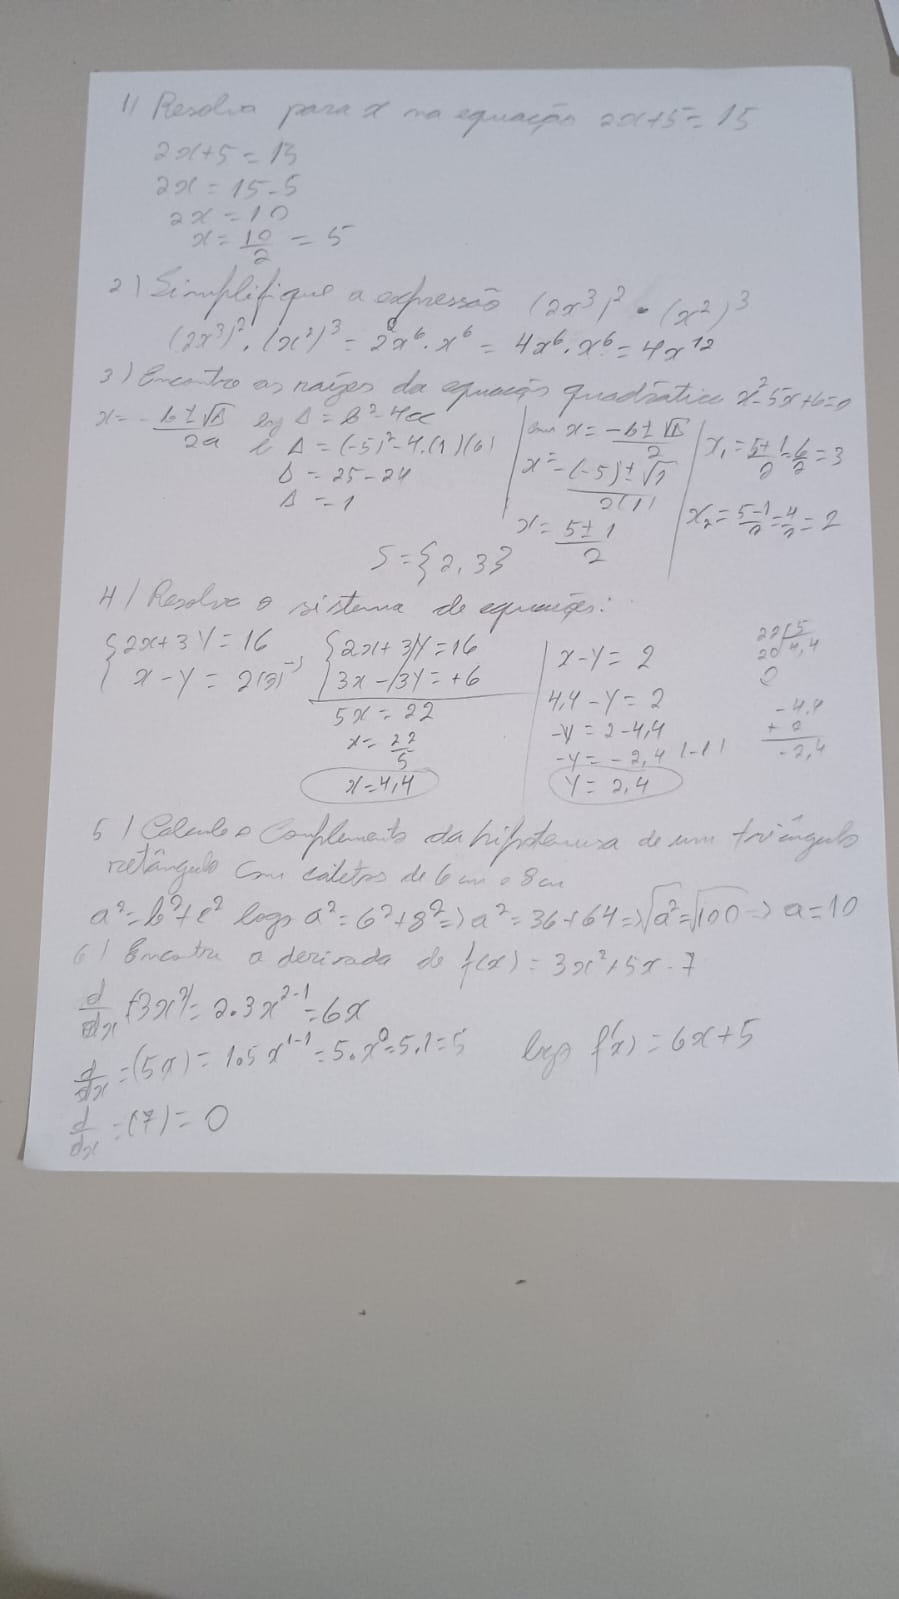 1) Resolva para x na equação 2x+5=15
2x+5=15
2x=15-5
2x=10
x=10/2=5
2) Simplifique a expressão (2x³)²·(x²)³
(2x³)²·(x²)³=2²x⁶·x⁶=4x⁶·x⁶=4x¹²
3) Encontre as raízes da equação quadrática x²-5x+6=0
x=-b±√Δ/2a
Δ=b²-4ac
Δ=(-5)²-4.(1)(6)
Δ=25-24
Δ=1
x=-b±√Δ/2
x=-(-5)±√1/2(1)
x=5±1/2
x₁=5+1/2=6/2=3
x₂=5-1/2=4/2=2
S={2,3}
4) Resolva o sistema de equações:
{2x+3y=16
x-y=2(3)
{2x+3y=16
3x-3y=+6
5x=22
x=22/5
x=4,4
x-y=2
4,4-y=2
-y=2-4,4
-y=-2,4 (-1)
y=2,4
22|5
20 4,4
0
-4,4
+2
-2,4
5) Calcule o Complemento da hipotenusa de um triângulo
retângulo com catetos de 6cm e 8cm
a²=b²+c² logo a²=6²+8²=>a²=36+64=>√a²=√100=>a=10
6) Encontre a derivada de f(x)=3x²+5x-7
d/dx(3x²)=2.3x²⁻¹=6x
d/dx=(5x)=1.5x¹⁻¹=5.x⁰=5.1=5 logo f'(x)=6x+5
d/dx=(7)=0